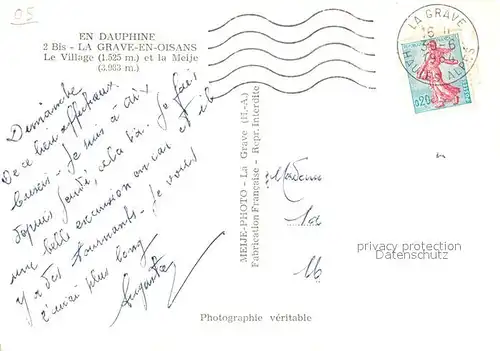 05
EN DAUPHINE
2 Bis - LA GRAVE-EN-OISANS
Le Village (1.525 m.) et la Meije
(3.983 m.)
LA GRAVE
HAUTES ALPES
0,20
Dimanche
De ce lieu affectueux
baisers - Je suis à Aix
depuis Jeudi, cela va. Je fais
une belle excursion en car et il
y a des tournants - Je vous
écrirai plus long
Augusta
MEIJE-PHOTO - La Grave (H.-A.)
Fabrication Française - Repr. Interdite
Madame
privacy protection
Datenschutz
Photographie véritable